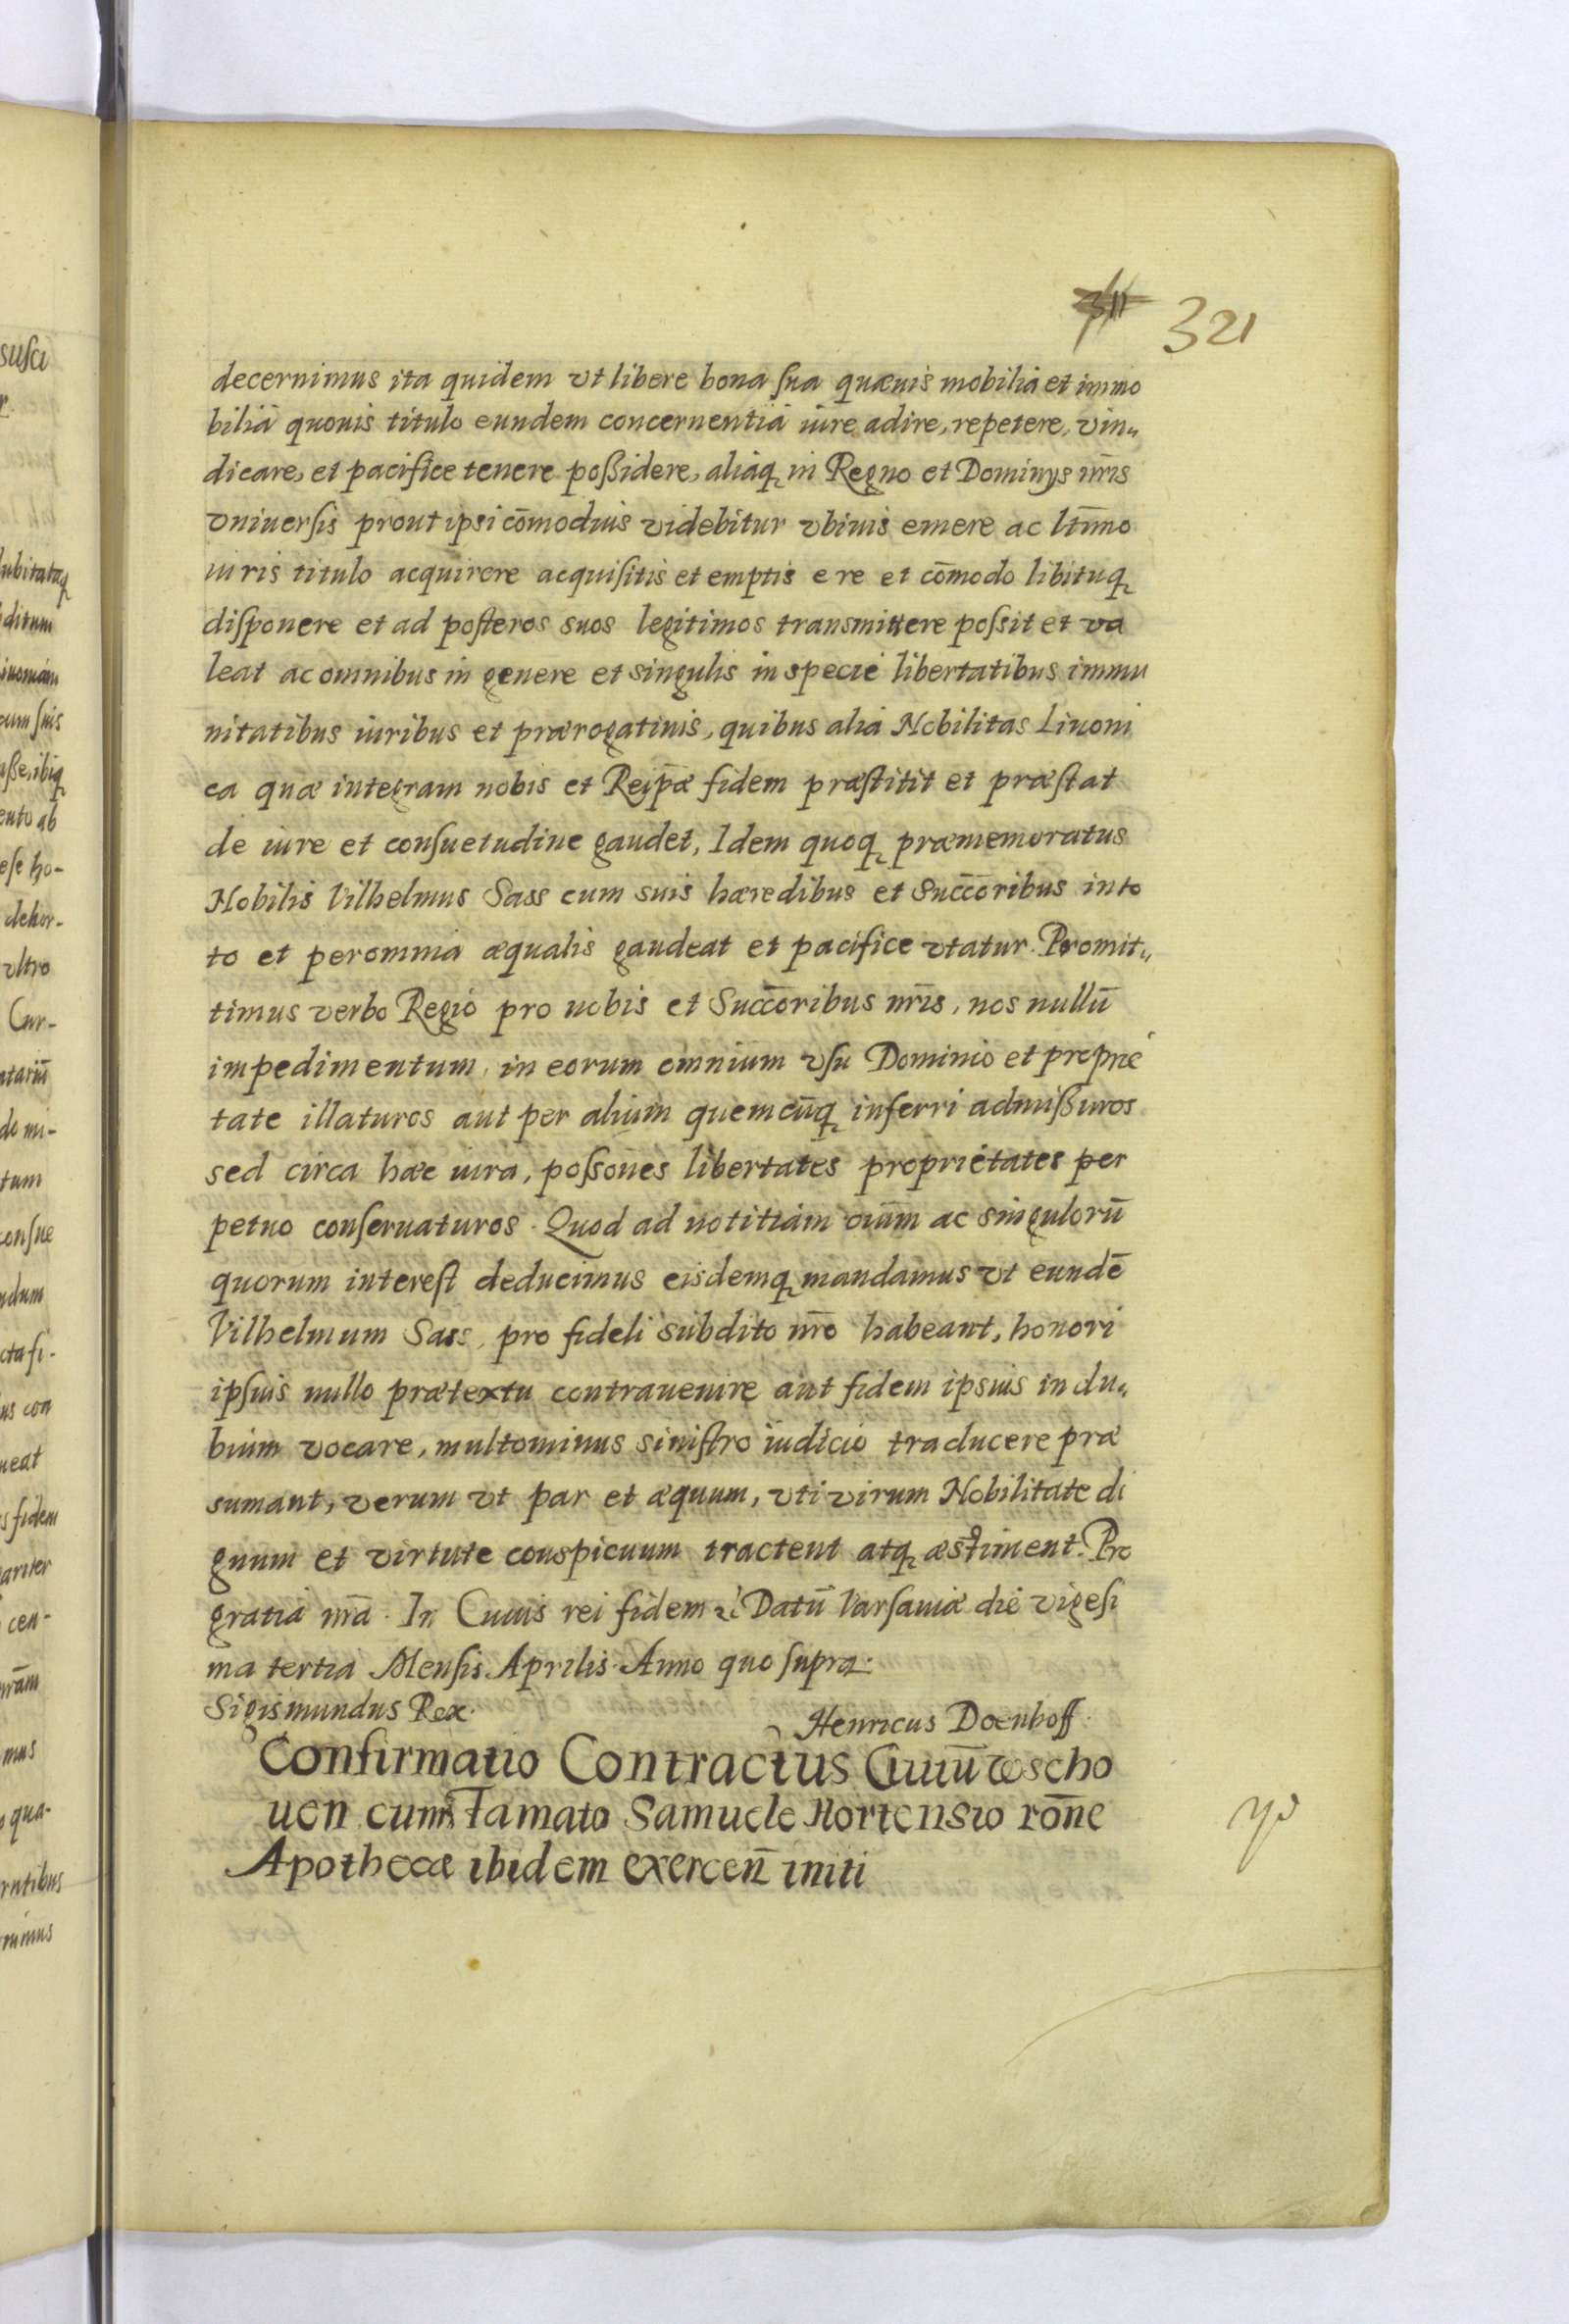 311 321
decernimus ita quidem vt libere bona sua quæuis mobilia et immo
bilia quouis titulo eundem concernentia iure adire, repetere, vin„
dicare, et pacifice tenere poßidere, aliaq in Regno et Dominys nr̄is
vniuersis prout ipsi com̄odius videbitur vbiuis emere ac ltīmo
iuris titulo acquirere acquisitis et emptis e re et com̄odo libituq
disponere et ad posteros suos legitimos transmittere possit et va
leat ac omnibus in genere et singulis in specie libertatibus immu
nitatibus iuribus et prærogatiuis, quibus alia Nobilitas Liuoni
ca quæ integram nobis et Reip̄æ fidem præstitit et præstat
de iure et consuetudine gaudet, Idem quoq præmemoratus
Nobilis Vilhelmus Sass cum suis hæredibus et Succ̄oribus in to
to et per omnia æqualis gaudeat et pacifice vtatur. Promit„
timus verbo Regio pro nobis et Succ̄oribus nr̄is, nos nullū
impedimentum, in eorum omnium vsu Dominio et proprie
tate illaturos aut per alium quemcūq inferri admißuros
sed circa hæc iura, posso̅nes libertates proprietates per
petuo conseruaturos. Quod ad notitiam oiūm ac singulorū
quorum interest deducimus eisdemq mandamus vt eundē
Vilhelmum Sass, pro fideli subdito nr̄o habeant, honori
ipsius nullo prætextu contrauenire aut fidem ipsius in du„
bium vocare, multominus sinistro iudicio traducere præ
sumant, verum vt par et æquum, vti virum Nobilitate di
gnum et virtute conspicuum tractent atq æstiment. Pro
gratia nr̄a. In Cuius rei fidem Datū Varsauiæ die vigesi
ma tertia Mensis Aprilis. Anno quo supra.
Sigismundus Rex. Henricus Doenhoff.
Confirmatio Contractus Ciuiū Wscho
uen cum Famato Samuele Hortensio ron̄e
Apothecæ ibidem exercen̄ initi